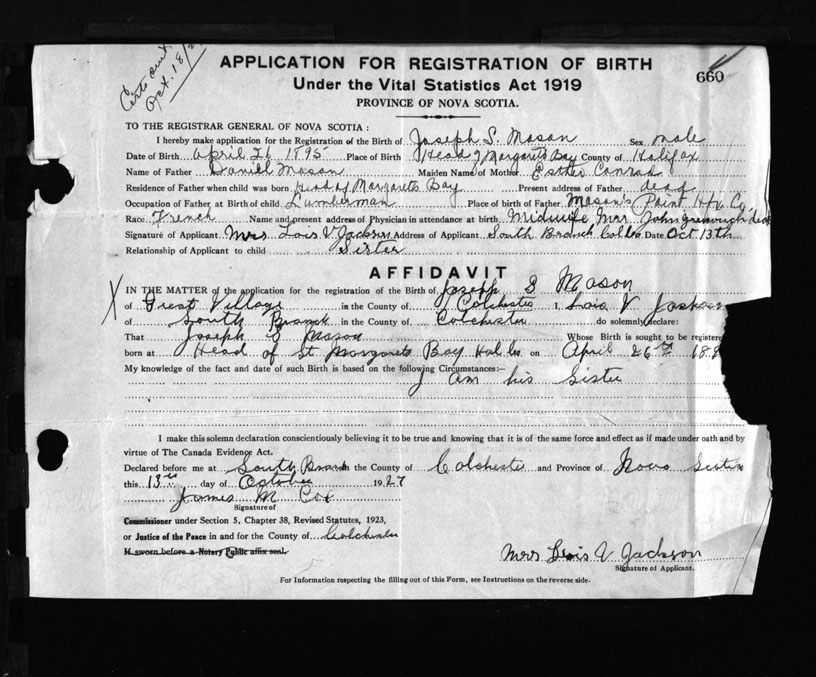 Oct. 18/2
APPLICATION FOR REGISTRATION OF BIRTH
660
Under the Vital Statistics Act 1919
PROVINCE OF NOVA SCOTIA.
TO THE REGISTRAR GENERAL OF NOVA SCOTIA :
I hereby make application for the Registration of the Birth of Joseph S. Mason Sex male
Date of Birth April 26 1895 Place of Birth Head of Margarets Bay County of Halifax
Name of Father Daniel Mason Maiden Name of Mother Esther Conrad
Residence of Father when child was born Head of Margarets Bay Present address of Father dead
Occupation of Father at Birth of child Lumberman Place of birth of Father Mason's Point Hfx Co.
Race French Name and present address of Physician in attendance at birth Midwife Mrs. John dead
Signature of Applicant Mrs Lois V Jackson Address of Applicant South Branch Col Co. Date Oct 13th
Relationship of Applicant to child Sister
AFFIDAVIT
IN THE MATTER of the application for the registration of the Birth of Joseph S Mason
of Great Village in the County of Colchester I, Lois V Jackson
of South Branch in the County of Colchester do solemnly declare:
That Joseph S Mason Whose Birth is sought to be registere
born at Head of St Margarets Bay Hal Co on April 26th 189
My knowledge of the fact and date of such Birth is based on the following Circumstances:—
I am his Sister
I make this solemn declaration conscientiously believing it to be true and knowing that it is of the same force and effect as if made under oath and by
virtue of The Canada Evidence Act.
Declared before me at South Branch in the County of Colchester and Province of Nova Scotia
this 13th day of October 1927
James M Cox
Signature of
Commissioner under Section 5, Chapter 38, Revised Statutes, 1923,
or Justice of the Peace in and for the County of Colchester
If sworn before a Notary Public affix seal.
Mrs Lois V Jackson
Signature of Applicant.
For Information respecting the filling out of this Form, see Instructions on the reverse side.